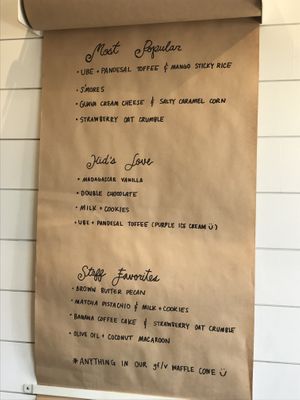 Most Popular
• UBE + PANDESAL TOFFEE & MANGO STICKY RICE
• S'MORES
• GUAVA CREAM CHEESE & SALTY CARAMEL CORN
• STRAWBERRY OAT CRUMBLE
Kid's Love
• MADAGASCAR VANILLA
• DOUBLE CHOCOLATE
• MILK + COOKIES
• UBE + PANDESAL TOFFEE (PURPLE ICE CREAM Ü)
Staff Favorites
• BROWN BUTTER PECAN
• MATCHA PISTACHIO & MILK + COOKIES
• BANANA COFFEE CAKE & STRAWBERRY OAT CRUMBLE
• OLIVE OIL + COCONUT MACAROON
* ANYTHING IN OUR gf/v WAFFLE CONE Ü